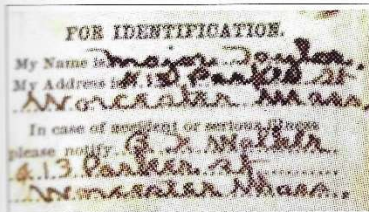 FOR IDENTIFICATION.
My Name is Major Taylor
My Address is # 13 Parker St
Worcester Mass.
In case of accident or serious illness
please notify
13 Parker St
Worcester Mass.